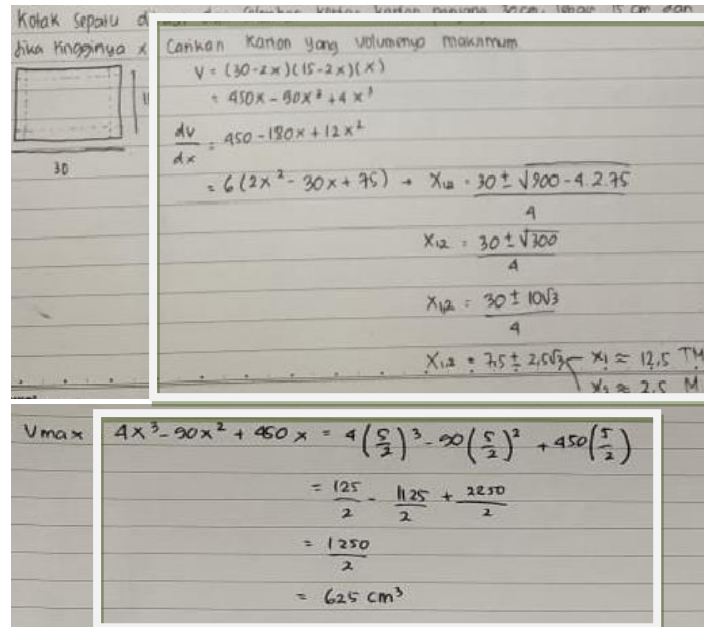 Kotak sepatu
jika tingginya x
30
Carikan Karton yang volumenya maksimum
V = (30-2x)(15-2x)(x)
= 450x - 90x² + 4x³
dv/dx = 450 - 180x + 12x²
= 6(2x² - 30x + 75) → X₁,₂ = 30 ± √900 - 4.2.75 / 4
X₁,₂ = 30 ± √300 / 4
X₁,₂ = 30 ± 10√3 / 4
X₁,₂ = 7,5 ± 2,5√3 x₁ ≈ 12,5 TM
x₂ ≈ 2,5 M
Vmax 4x³ - 90x² + 450x = 4(5/2)³ - 90(5/2)² + 450(5/2)
= 125/2 - 1125/2 + 2250/2
= 1250/2
= 625 cm³